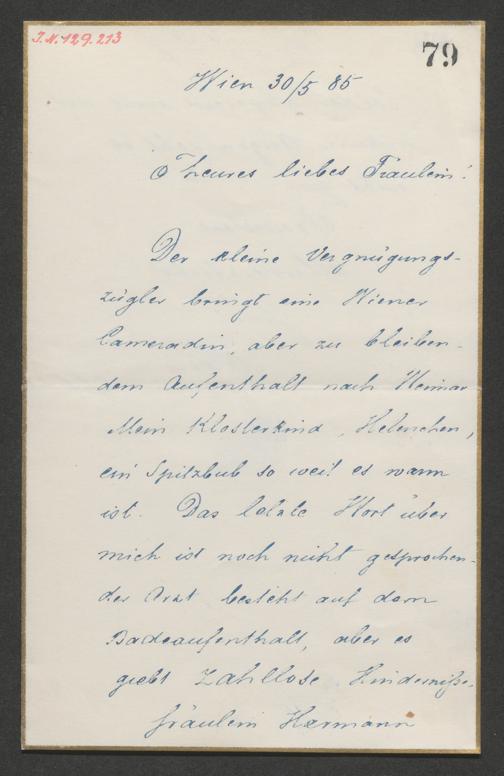 J.N. 129.213
79
Wien 30/5 85
Theures liebes Fräulein!
Der kleine Vergnügungs-
zügler bringt eine Wiener
Cameradin, aber zu bleiben-
dem Aufenthalt nach Weimar
Mein Klosterkind, Helenchen,
ein Spitzbub so weit es warm
ist. Das letzte Wort über
mich ist noch nicht gesprochen-
der Arzt besteht auf dem
Badeaufenthalt, aber es
giebt zahllose Hinderniße.
Fräulein Hermann